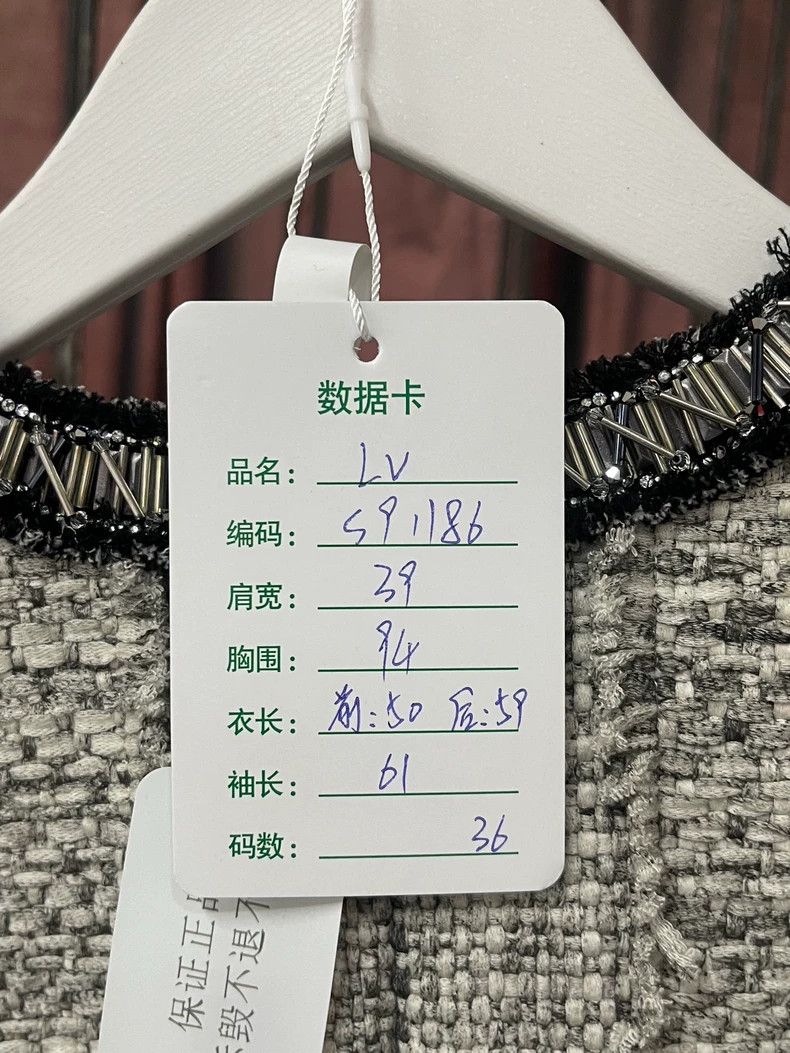 数据卡
品名: LV
编码: S91186
肩宽: 39
胸围: 94
衣长: 前:50 后:59
袖长: 61
码数: 36
保证正品
毁不退不